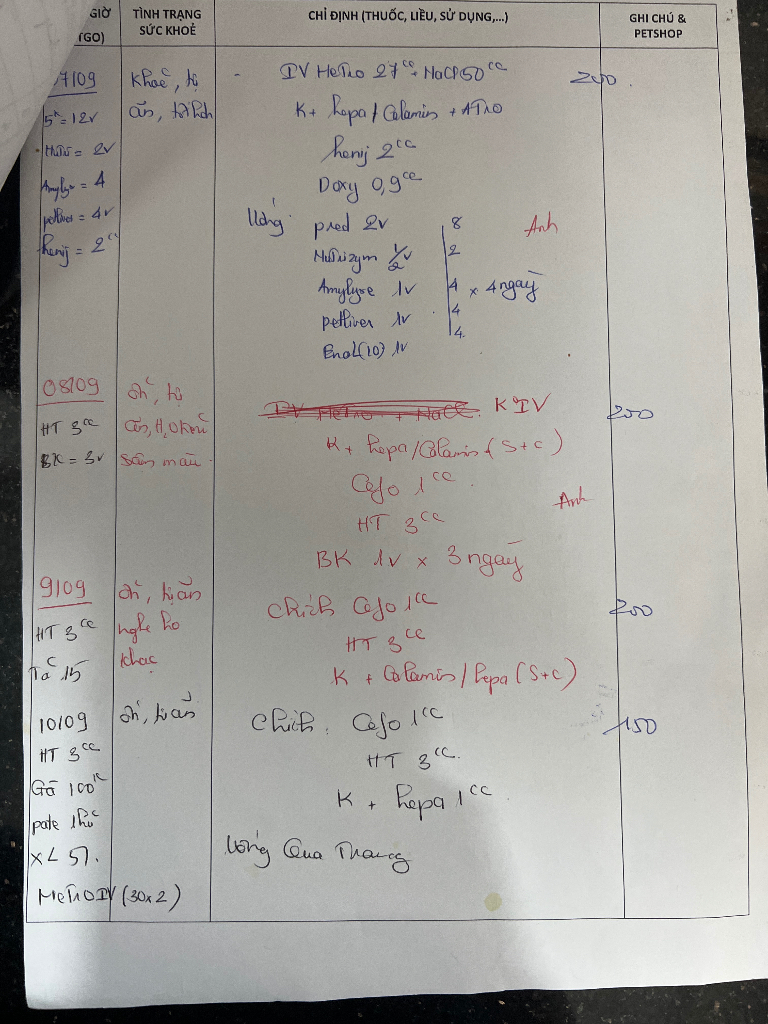 GIỜ
(TGO)
TÌNH TRẠNG
SỨC KHOẺ
CHỈ ĐỊNH (THUỐC, LIỀU, SỬ DỤNG,...)
GHI CHÚ &
PETSHOP
07/09
5k = 12v
= 2v
Amylyse = 4
petliver = 4v
henij = 2cc
Khoẻ, tự
ăn,
- IV Metro 27cc + NaCl 50cc
K + hepa / Catamin + Atro
henij 2cc
Doxy 0,9cc
Uống: pred 2v 8
Nutrizym 1/2v 2
Amylyse 1v 4 x 4 ngày
petliver 1v 4
Enal(10) 1v 4
Anh
200
08/09
HT 3cc
BK = 3v
ổn, tự
sẫm màu
IV Metro + NaCl. K IV
K + hepa/Catamin (S+C)
Cefo 1cc
HT 3cc
BK 1v x 3 ngày
Anh
200
9/09
HT 3cc
ổn, tự ăn
nghe ho
khạc
Chích Cefo 1cc
HT 3cc
K + Catamin / hepa (S+C)
200
10/09
HT 3cc
Gà 100k
pate
XL 5l.
Metro IV (30x2)
ổn, tự ăn
Chích. Cefo 1cc
HT 3cc
K + hepa 1cc
Uống Qua Thang
150